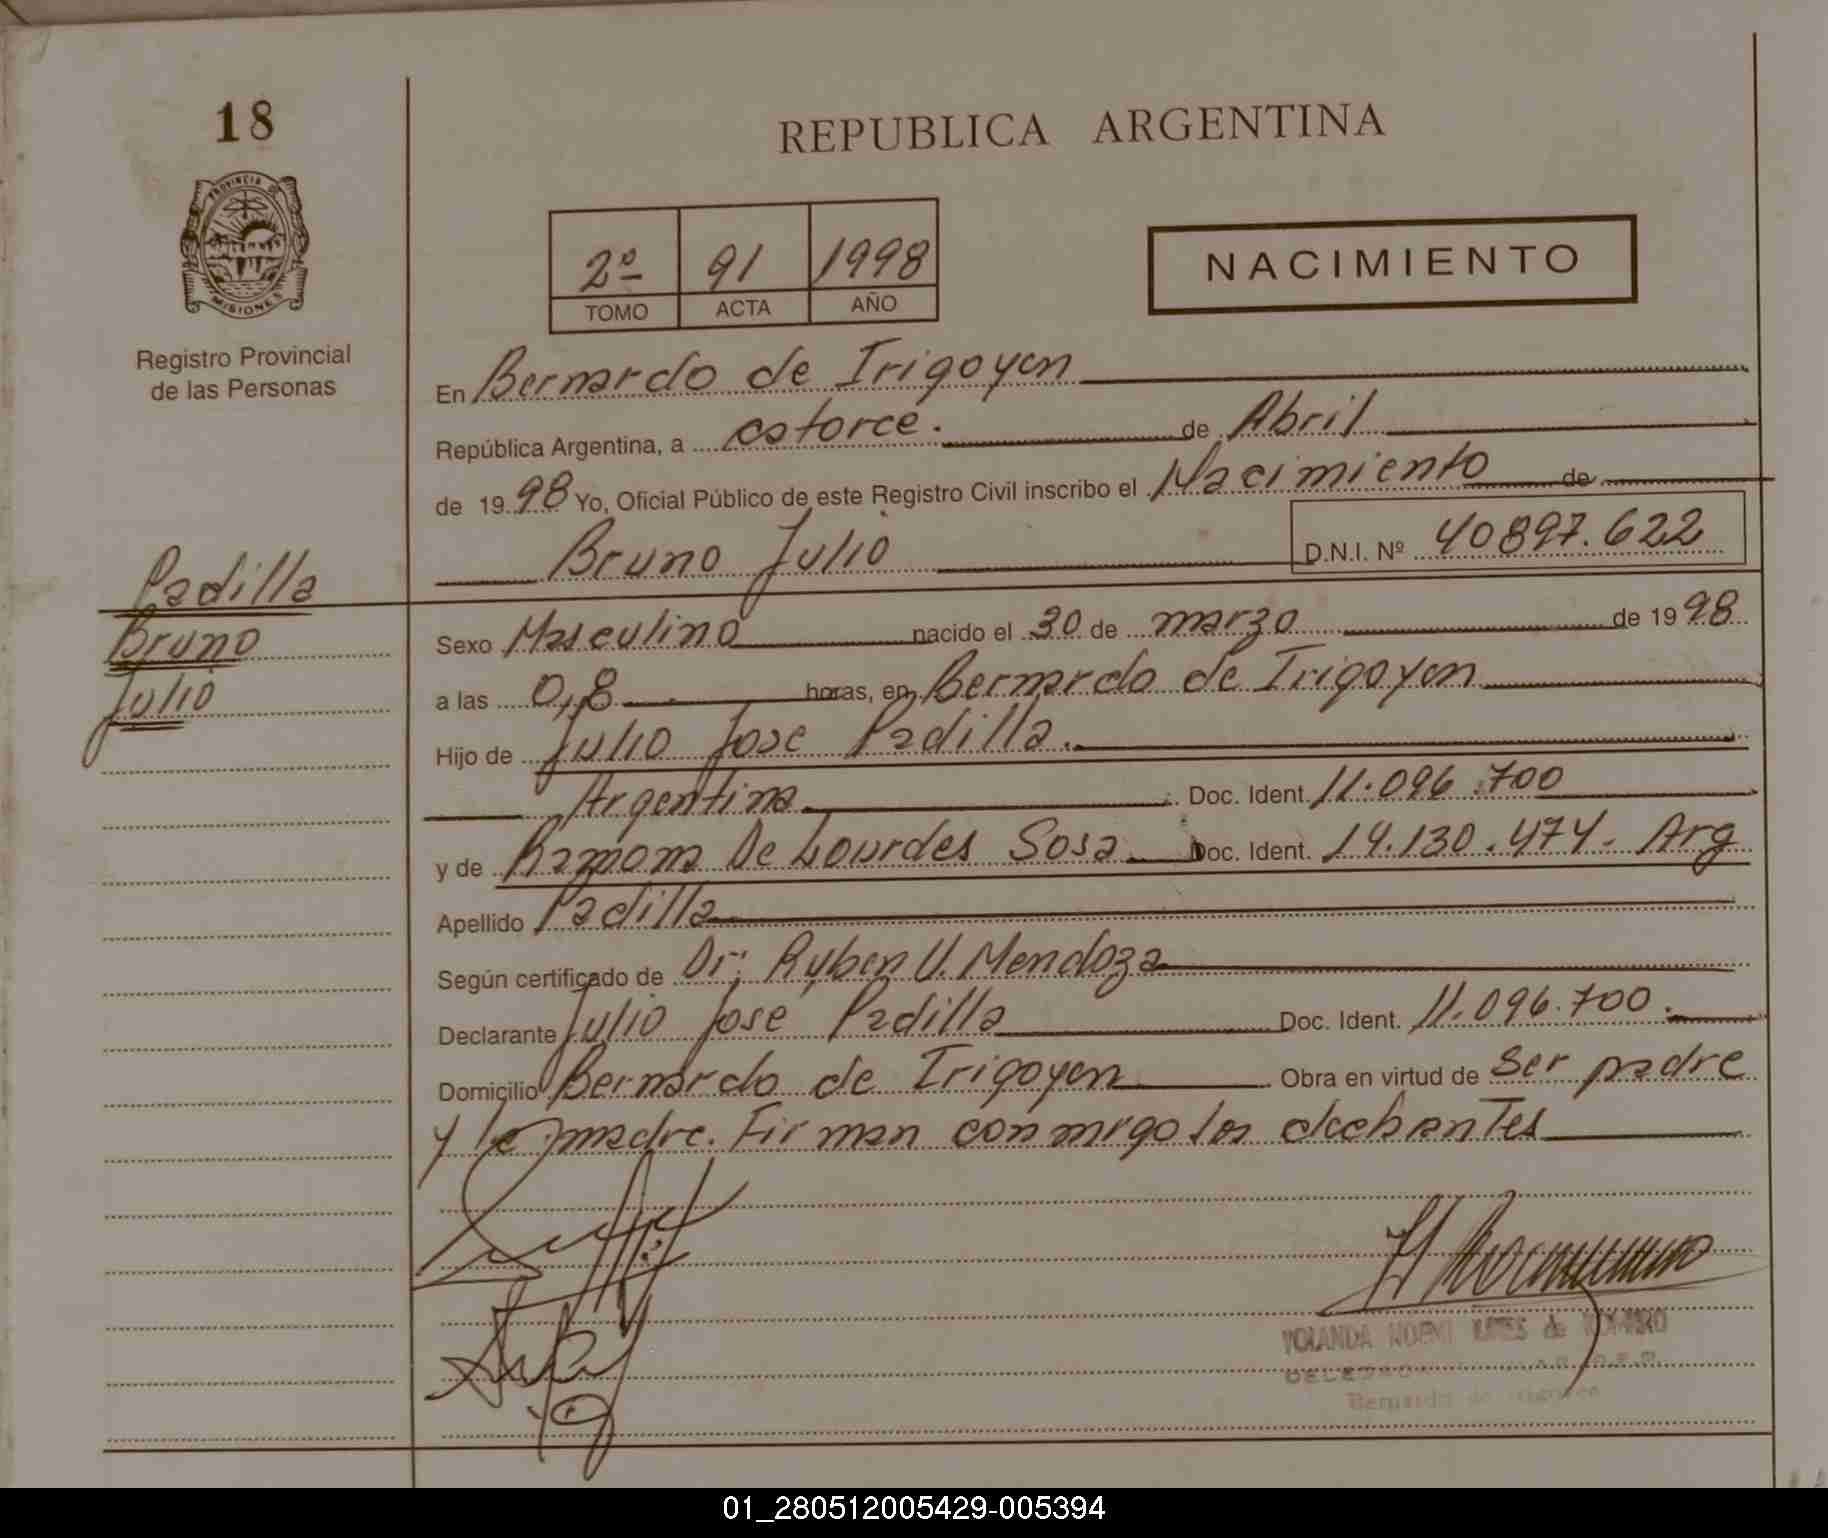 18
REPUBLICA ARGENTINA
PROVINCIA DE
MISIONES
Registro Provincial
de las Personas
2º 91 1998
TOMO ACTA AÑO
NACIMIENTO
En Bernardo de Irigoyen
República Argentina, a catorce. de Abril
de 1998 Yo, Oficial Público de este Registro Civil inscribo el Nacimiento de
Bruno Julio D.N.I. Nº 40897.622
Padilla
Bruno
Julio
Sexo Masculino nacido el 30 de marzo de 1998
a las 0,8 horas, en Bernardo de Irigoyen
Hijo de Julio Jose Padilla.
Argentina Doc. Ident. 11.096.700
y de Ramona De Lourdes Sosa Doc. Ident. 14.130.474. Arg
Apellido Padilla
Según certificado de Dr; Ruben V. Mendoza
Declarante Julio José Padilla Doc. Ident. 11.096.700.
Domicilio Bernardo de Irigoyen Obra en virtud de ser padre
y la madre. Firman conmigo los
YOLANDA NOEMI de
Bernardo de Irigoyen
01_280512005429-005394